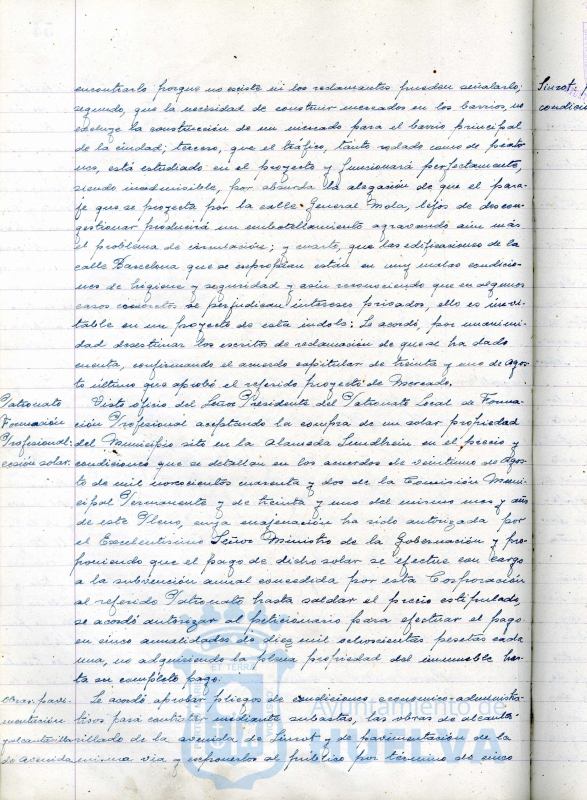 encontrarlo porque no existe ni los reclamantes pueden señalarlo;
segundo, que la necesidad de construir mercados en los barrios, no
excluye la construcción de un mercado para el barrio principal
de la ciudad; tercero, que el tráfico, tanto rodado como de peato
nes, está estudiado en el proyecto y funcionará perfectamente,
siendo inadmisible, por absurda la alegación de que el para-
je que se proyecta por la calle General Mola, lejos de descon
gestionar producirá un embotellamiento agravando aún más
el problema de circulación; y cuarto, que las edificaciones de la
calle Barcelona que se expropian están en muy malas condicio-
nes de higiene y seguridad y aún reconociendo que en algunos
casos concretos se perjudican intereses privados, ello es inevi-
table en un proyecto de esta índole; Se acordó, por unanimi-
dad desestimar los escritos de reclamación de que se ha dado
cuenta, confirmando el acuerdo capitular de treinta y uno de Agos-
to último que aprobó el referido proyecto de Mercado.
Patronato
Formación
Profesional:
cesión solar.
Visto oficio del Señor Presidente del Patronato Local de Forma-
ción Profesional aceptando la compra de un solar propiedad
del Municipio sito en la Alameda Sundhein en el precio y
condiciones que se detallan en los acuerdos de veintiuno de Agos-
to de mil novecientos cuarenta y dos de la Comisión Muni-
cipal Permanente y de treinta y uno del mismo mes y año
de este Pleno, cuya enajenación ha sido autorizada por
el Excelentísimo Señor Ministro de la Gobernación y pro-
poniendo que el pago de dicho solar se efectue con cargo
a la subvención anual concedida por esta Corporación
al referido Patronato hasta saldar el precio estipulado,
se acordó autorizar al peticionario para efectuar el pago
en cinco anualidades de diez mil ochocientas pesetas cada
una, no adquiriendo la plena propiedad del inmueble has-
ta su completo pago.
Obras: pavi-
mentación
y alcantarilla
do Avenida
Se acordó aprobar pliegos de condiciones económico-administra-
tivas para contratar mediante subasta, las obras de alcanta-
rillado de la avenida de Siurot y de pavimentación de la
misma via y exponerlos al público por término de cinco
Siurot:
condicio
ET TERRA
Ayuntamiento de
HUELVA